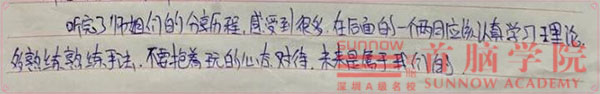 听完了师姐们的分享历程,感受到很多,在后面的一个两月应该认真学习理论,
多熟练熟练手法,不要抱着玩的心态对待,未来是属于我们的
SUNNOW
首脑学院
深圳A级名校
SUNNOW ACADEMY